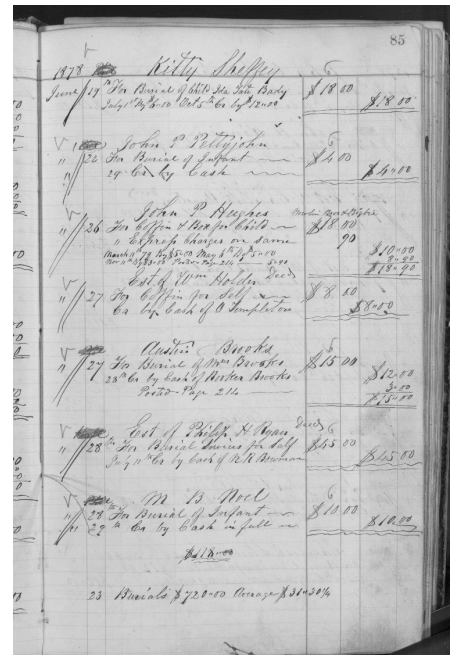 85
1878 Kitty Sheffey
June 19th For Burial of Child Ida Tate Body $18.00
July 1st By 6.00 Oct 5th Ca by 12.00 $18.00
John P Pettyjohn
" 26 For Burial of Infant $4.00
29 Ca by Cash $4.00
John P Hughes
" 26 For Coffin & Box for Child $18.00
" Express Charges on Same 90
March 11th 79 By $5.00 May 6th By 5.00 $10.00
Posted Page 214 8.90
$18.90
Est. of Wm Holder Decd
" 27 For Coffin for Self $8.00
Ca by Cash of O Templeton $8.00
Austin Brooks
" 27 For Burial of Mrs Brooks $15.00
28th Ca by Cash of Barker Brooks $12.00
Posted Page 214 3.00
$15.00
Est of Philip H Ryan Decd
" 28th For Burial Service for Self $45.00
July 11th Ca by Cash of R K Bowman $45.00
M B Noel
" 28th For Burial of Infant $10.00
" 29th Ca by Cash in full $10.00
$118.00
23 Burials $720.00 Average $31.30¼